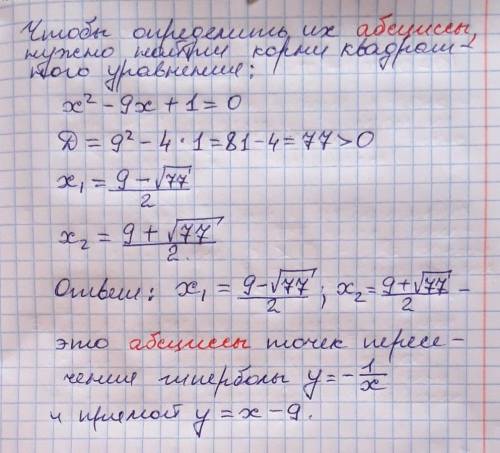 Чтобы определить их абсциссы,
нужно найти корни квадрат-
ного уравнения:
x² - 9x + 1 = 0
Д = 9² - 4 · 1 = 81 - 4 = 77 > 0
x₁ = (9 - √77)/2
x₂ = (9 + √77)/2.
Ответ: x₁ = (9 - √77)/2; x₂ = (9 + √77)/2 -
это абсциссы точек пересе-
чения гиперболы y = -1/x
и прямой y = x - 9.